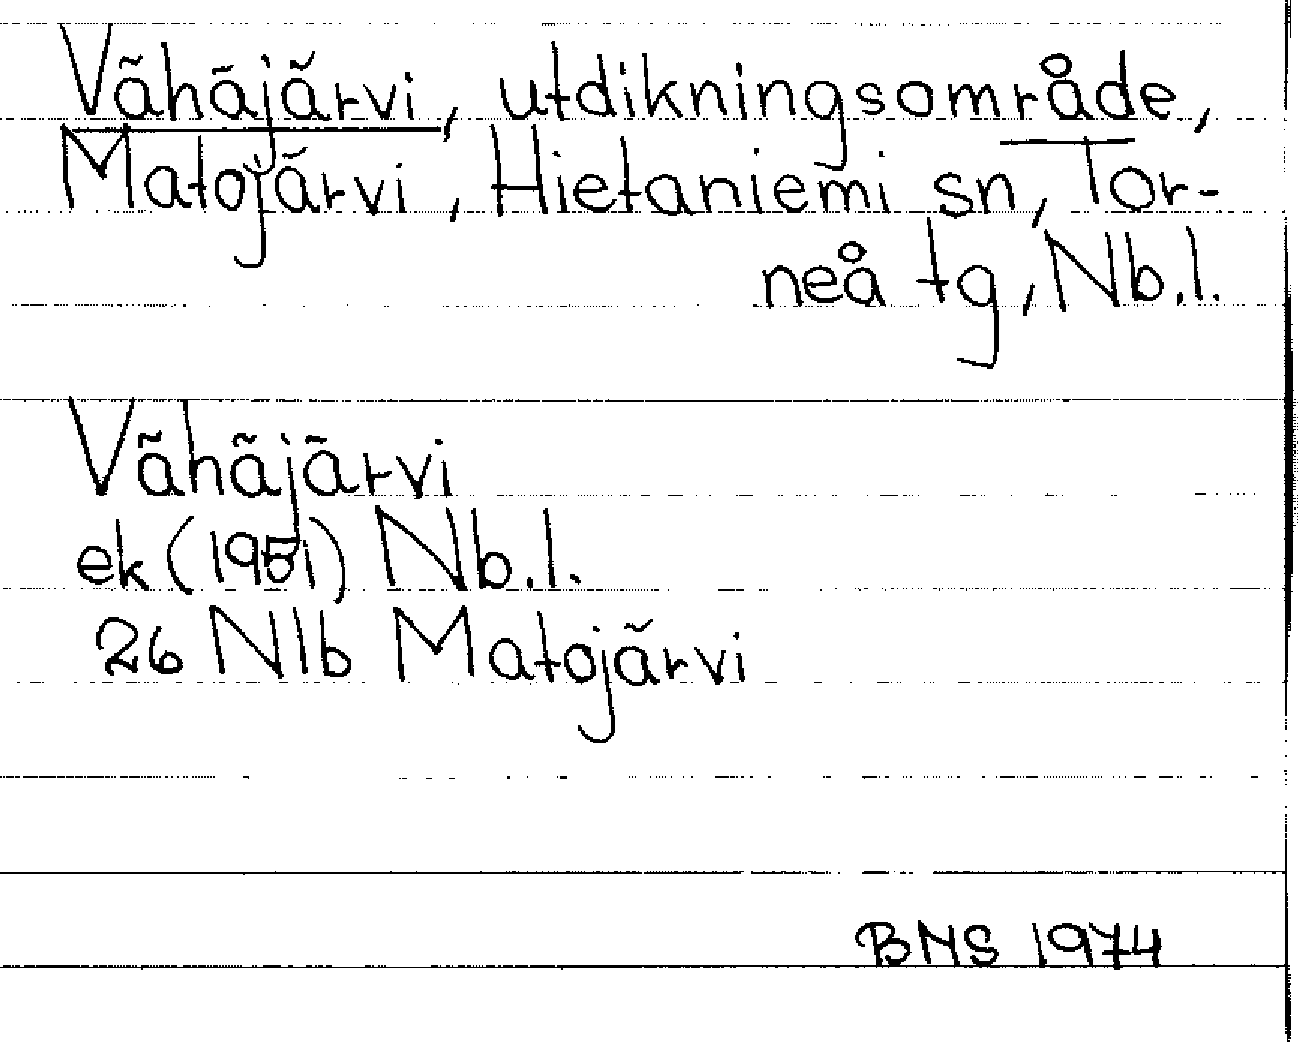 Vähäjärvi, utdikningsområde,
Matojärvi, Hietaniemi sn, Tor-
neå tg, Nb.l.
Vähäjärvi
ek (1951) Nb.l.
26 Nlb Matojärvi
BNS 1974